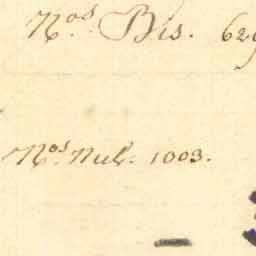 Nos. Bis. 629
Nos. Nul. 1003.